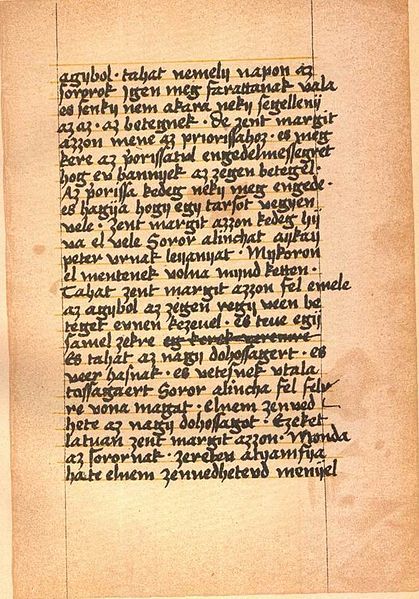 agybol · tahat nemely napon az
sororok igen meg farattanak vala
es senky nem akara neky segellenÿ
az az · az betegnek · de zent margit
azzon mene az priorissahoz · es meg
kere az porissatul engedelmessegret
hog ev bannyek az zegen betegel ·
Az porissa kedeg neky meg engede ·
es hagya hogy egy tarsot vegyen
vele · zent margit azzon kedeg hy
va el vele Soror alinchat aÿkaÿ
peter vrnak leÿanÿat · Mykoron
el mentenek volna mynd ketten ·
Tahat zent margit azzon fel emele
az agybol az zegen regÿ veen be
teget ennen kezeuel · Es teue egÿ
samel zekre eg kerek veremre
Es tahat az nagÿ dohossagert · es
veer hasnak · es vetesnek vtala
tossagaert Soror alincha fel felv
re vona magat · elnem zenved
hete az nagÿ dohossagot · Ezeket
latuan zent margit azzon · Monda
az sorornak · zeretev atyamfya
ha te elnem zenvedheted menÿel